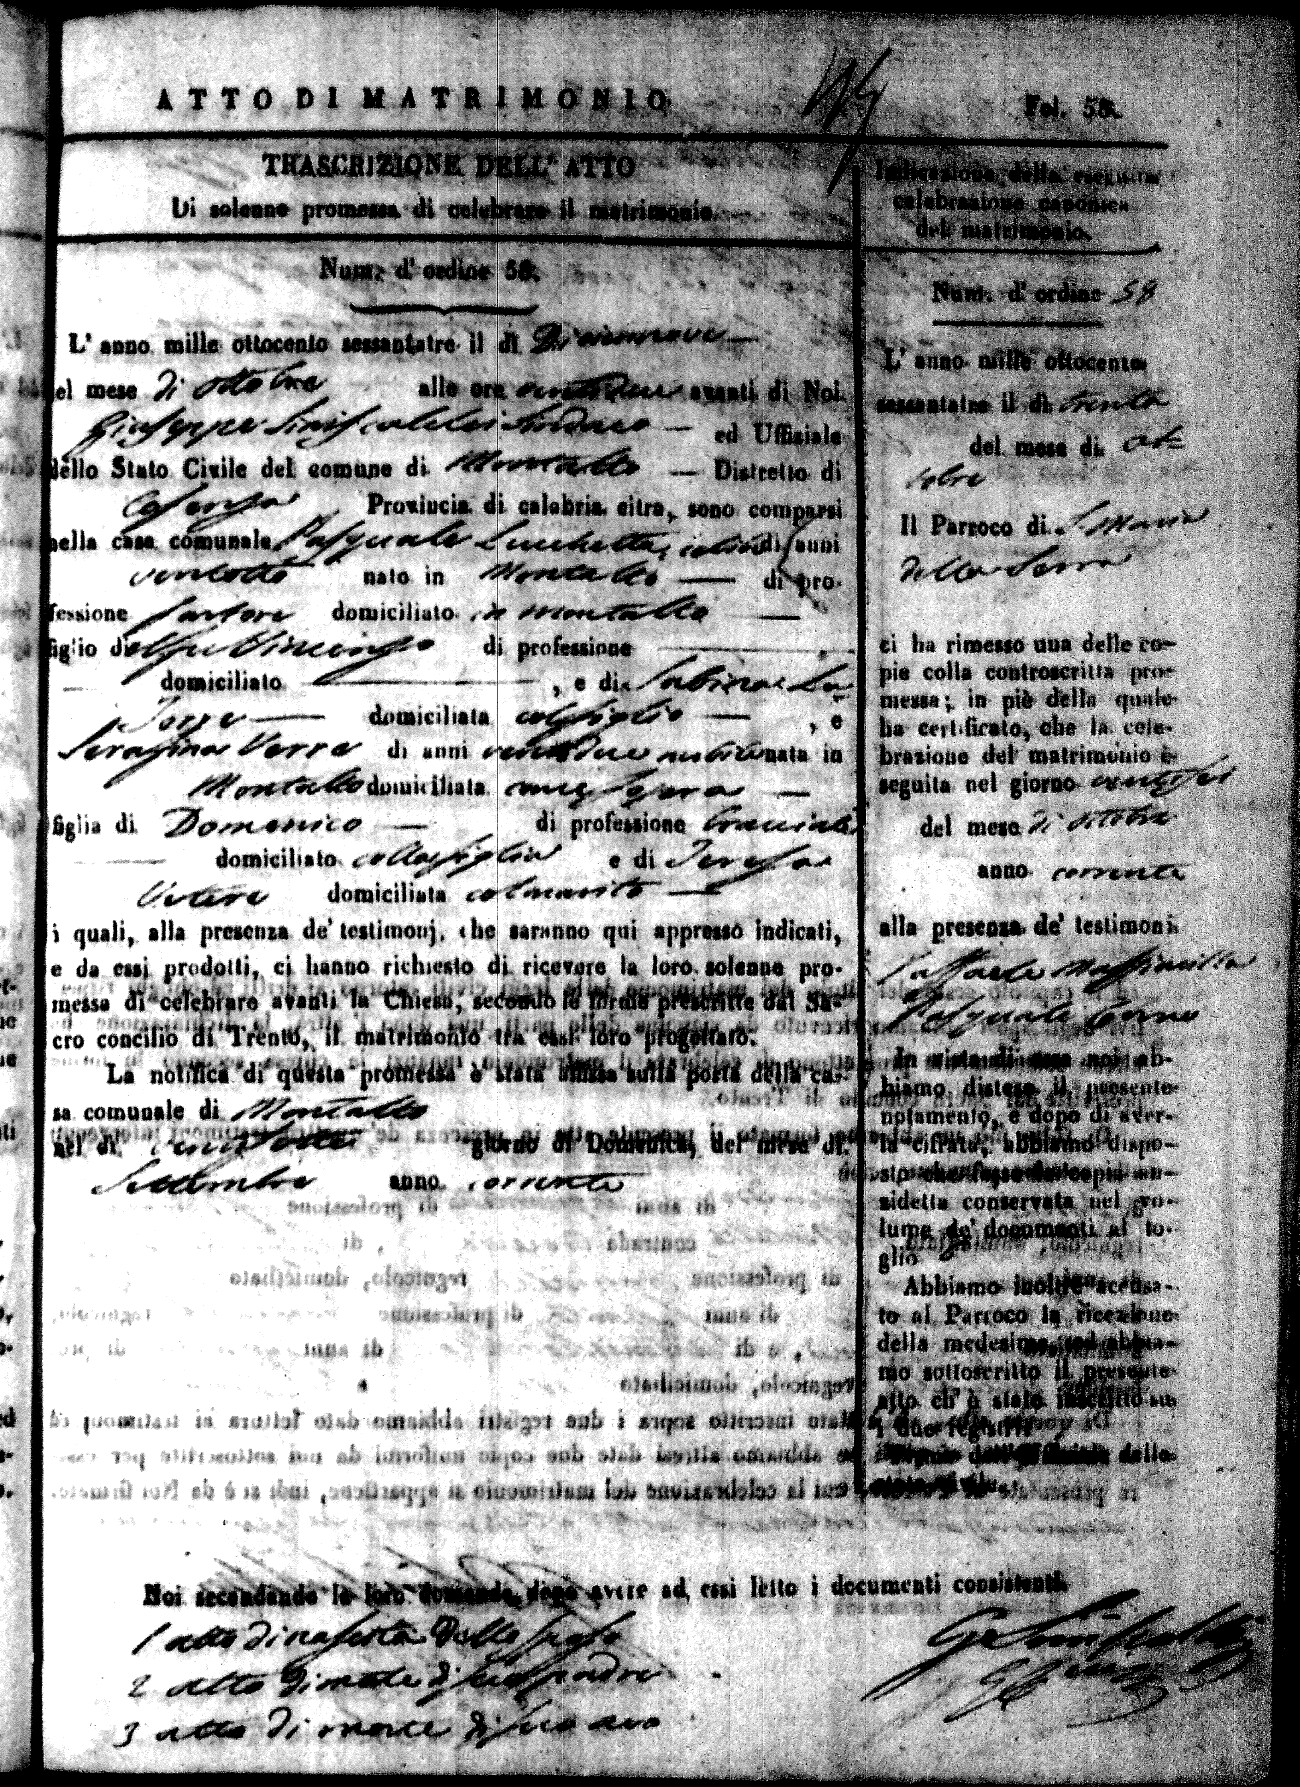 ATTO DI MATRIMONIO
Fol. 58.
TRASCRIZIONE DELL'ATTO
Di solenne promessa di celebrare il matrimonio.
Indicazione della seguita
celebrazione canonica
del matrimonio.
Num. d'ordine 58.
L'anno mille ottocento sessantatre il dì Diecinnove
del mese di ottobre alle ore ventidue avanti di Noi
Giuseppe Siniscalchi Sindaco ed Uffiziale
dello Stato Civile del comune di Montalto Distretto di
Cosenza Provincia di calabria citra, sono comparsi
nella casa comunale Pasquale Lucchetta, celibe di anni
ventotto nato in Montalto di pro-
fessione sartore domiciliato in Montalto
figlio di Vincenzo di professione
domiciliato , e di Sabina La
domiciliata col figlio , e
Serafina Verre di anni ventidue nubile nata in
Montalto domiciliata
figlia di Domenico di professione bracciale
domiciliato colla figlia e di Teresa
Vetere domiciliata col marito
i quali, alla presenza de' testimonj, che saranno qui appresso indicati,
e da essi prodotti, ci hanno richiesto di ricevere la loro solenne pro-
messa di celebrare avanti la Chiesa, secondo le forme prescritte dal Sa-
cro concilio di Trento, il matrimonio tra essi loro progettato.
La notifica di questa promessa è stata affissa sulla porta della ca-
sa comunale di Montalto
nel dì ventisette giorno di Domenica, del mese di
Settembre anno corrente
Noi secondando le loro domande dopo avere ad essi letto i documenti consistenti
1 atto di nascita dello sposo
2 atto di morte di suo padre
3 atto di morte di suo avo
Num. d'ordine 58
L'anno mille ottocento
sessantatre il dì trenta
del mese di ot
tobre
Il Parroco di S. Maria
della Serra
ci ha rimesso una delle co-
pie colla controscritta pro-
messa; in piè della quale
ha certificato, che la cele-
brazione del matrimonio è
seguita nel giorno ventisei
del mese di ottobre
anno corrente
alla presenza de' testimoni
Raffaele
Pasquale
In vista di essa noi ab-
biamo disteso il presente
notamento, e dopo di aver-
la cifrata, abbiamo dispo-
sto che fosse la copia an-
zidetta conservata nel vo-
lume de' documenti al fo-
glio
Abbiamo inoltre accusa-
to al Parroco la ricezione
della medesima, ed abbia-
mo sottoscritto il presente
atto ch'è stato inscritto su
i due registri